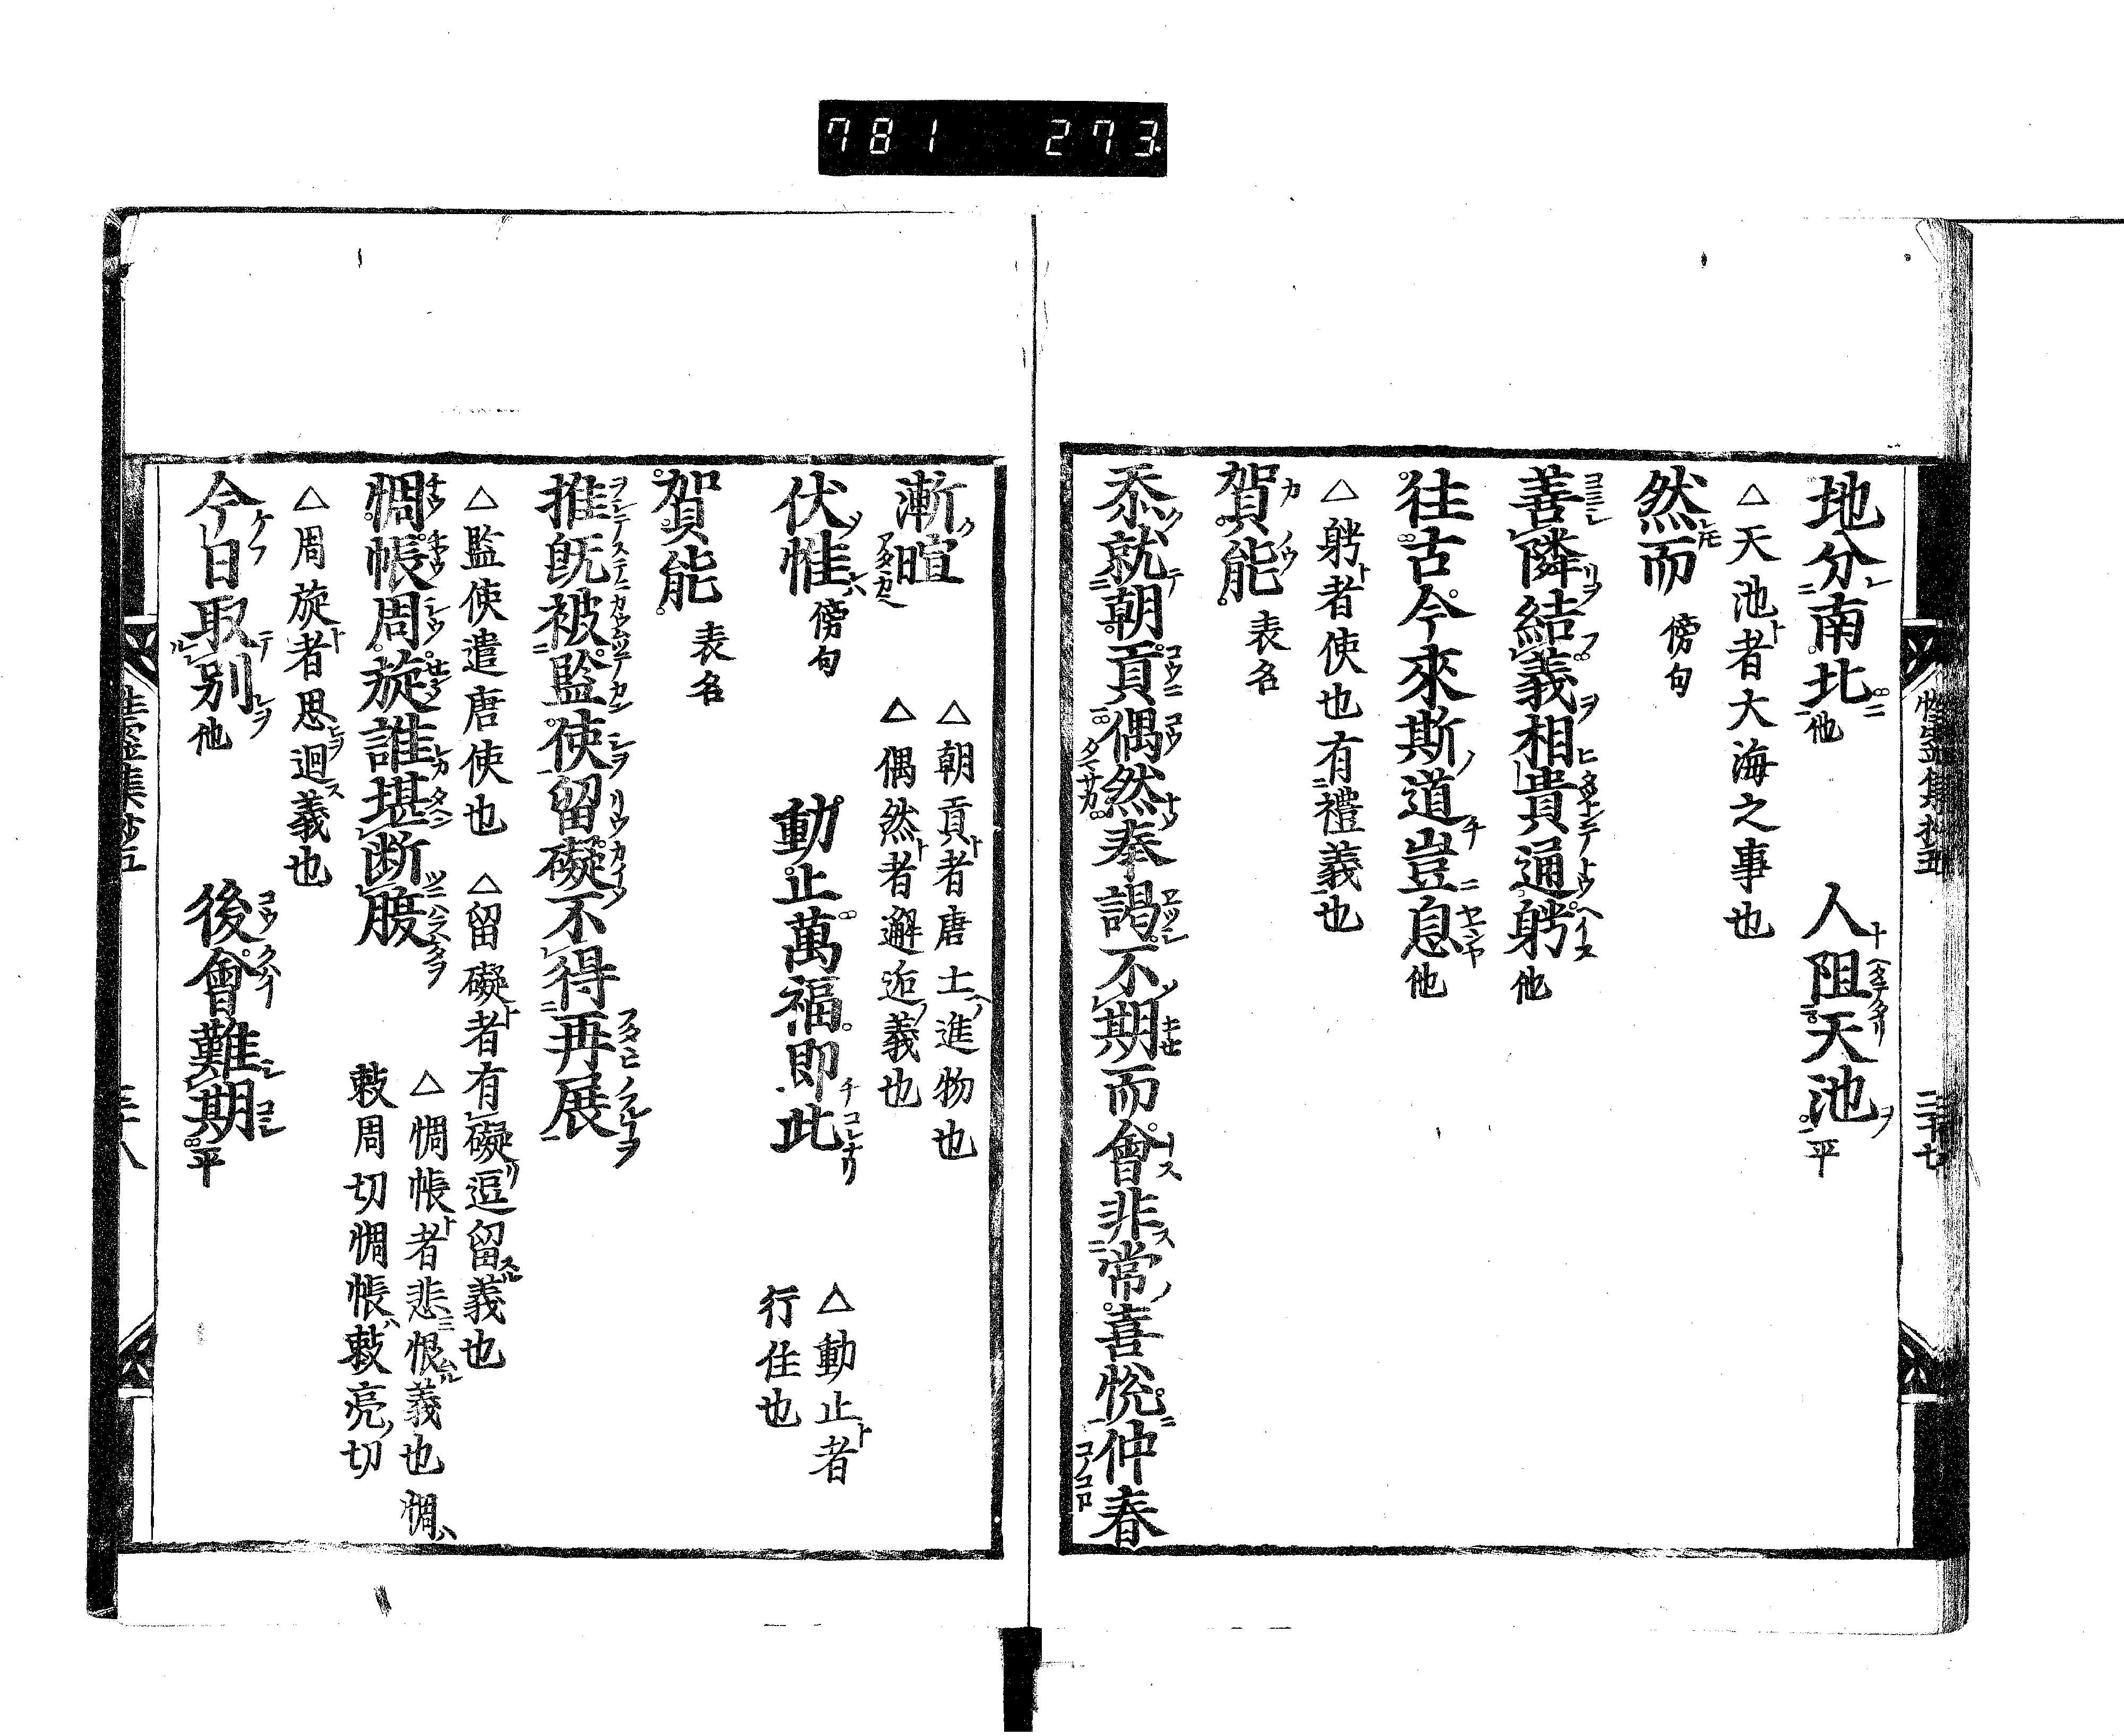 781 273
地分南北他 人阻天池平
△天池者大海之事也
然而 傍句
善隣結義相貴通躬他
往古今來斯道豈息他
△躬者使也有禮義也
賀能 表名
忝就朝貢偶然奉謁不期而會非常喜悅仲春
漸暄 △朝貢者唐土進物也
△偶然者邂逅義也
伏惟 傍句 動止萬福即此 △動止者
行住也
賀能 表名
推既被監使留礙不得再展
△監使遣唐使也 △留礙者有礙逗留義也
惆悵周旋誰堪断腹 △惆悵者悲恨義也 惆
敕周切惆悵敕亮切
△周旋者思迴義也
今日取別他 後會難期平